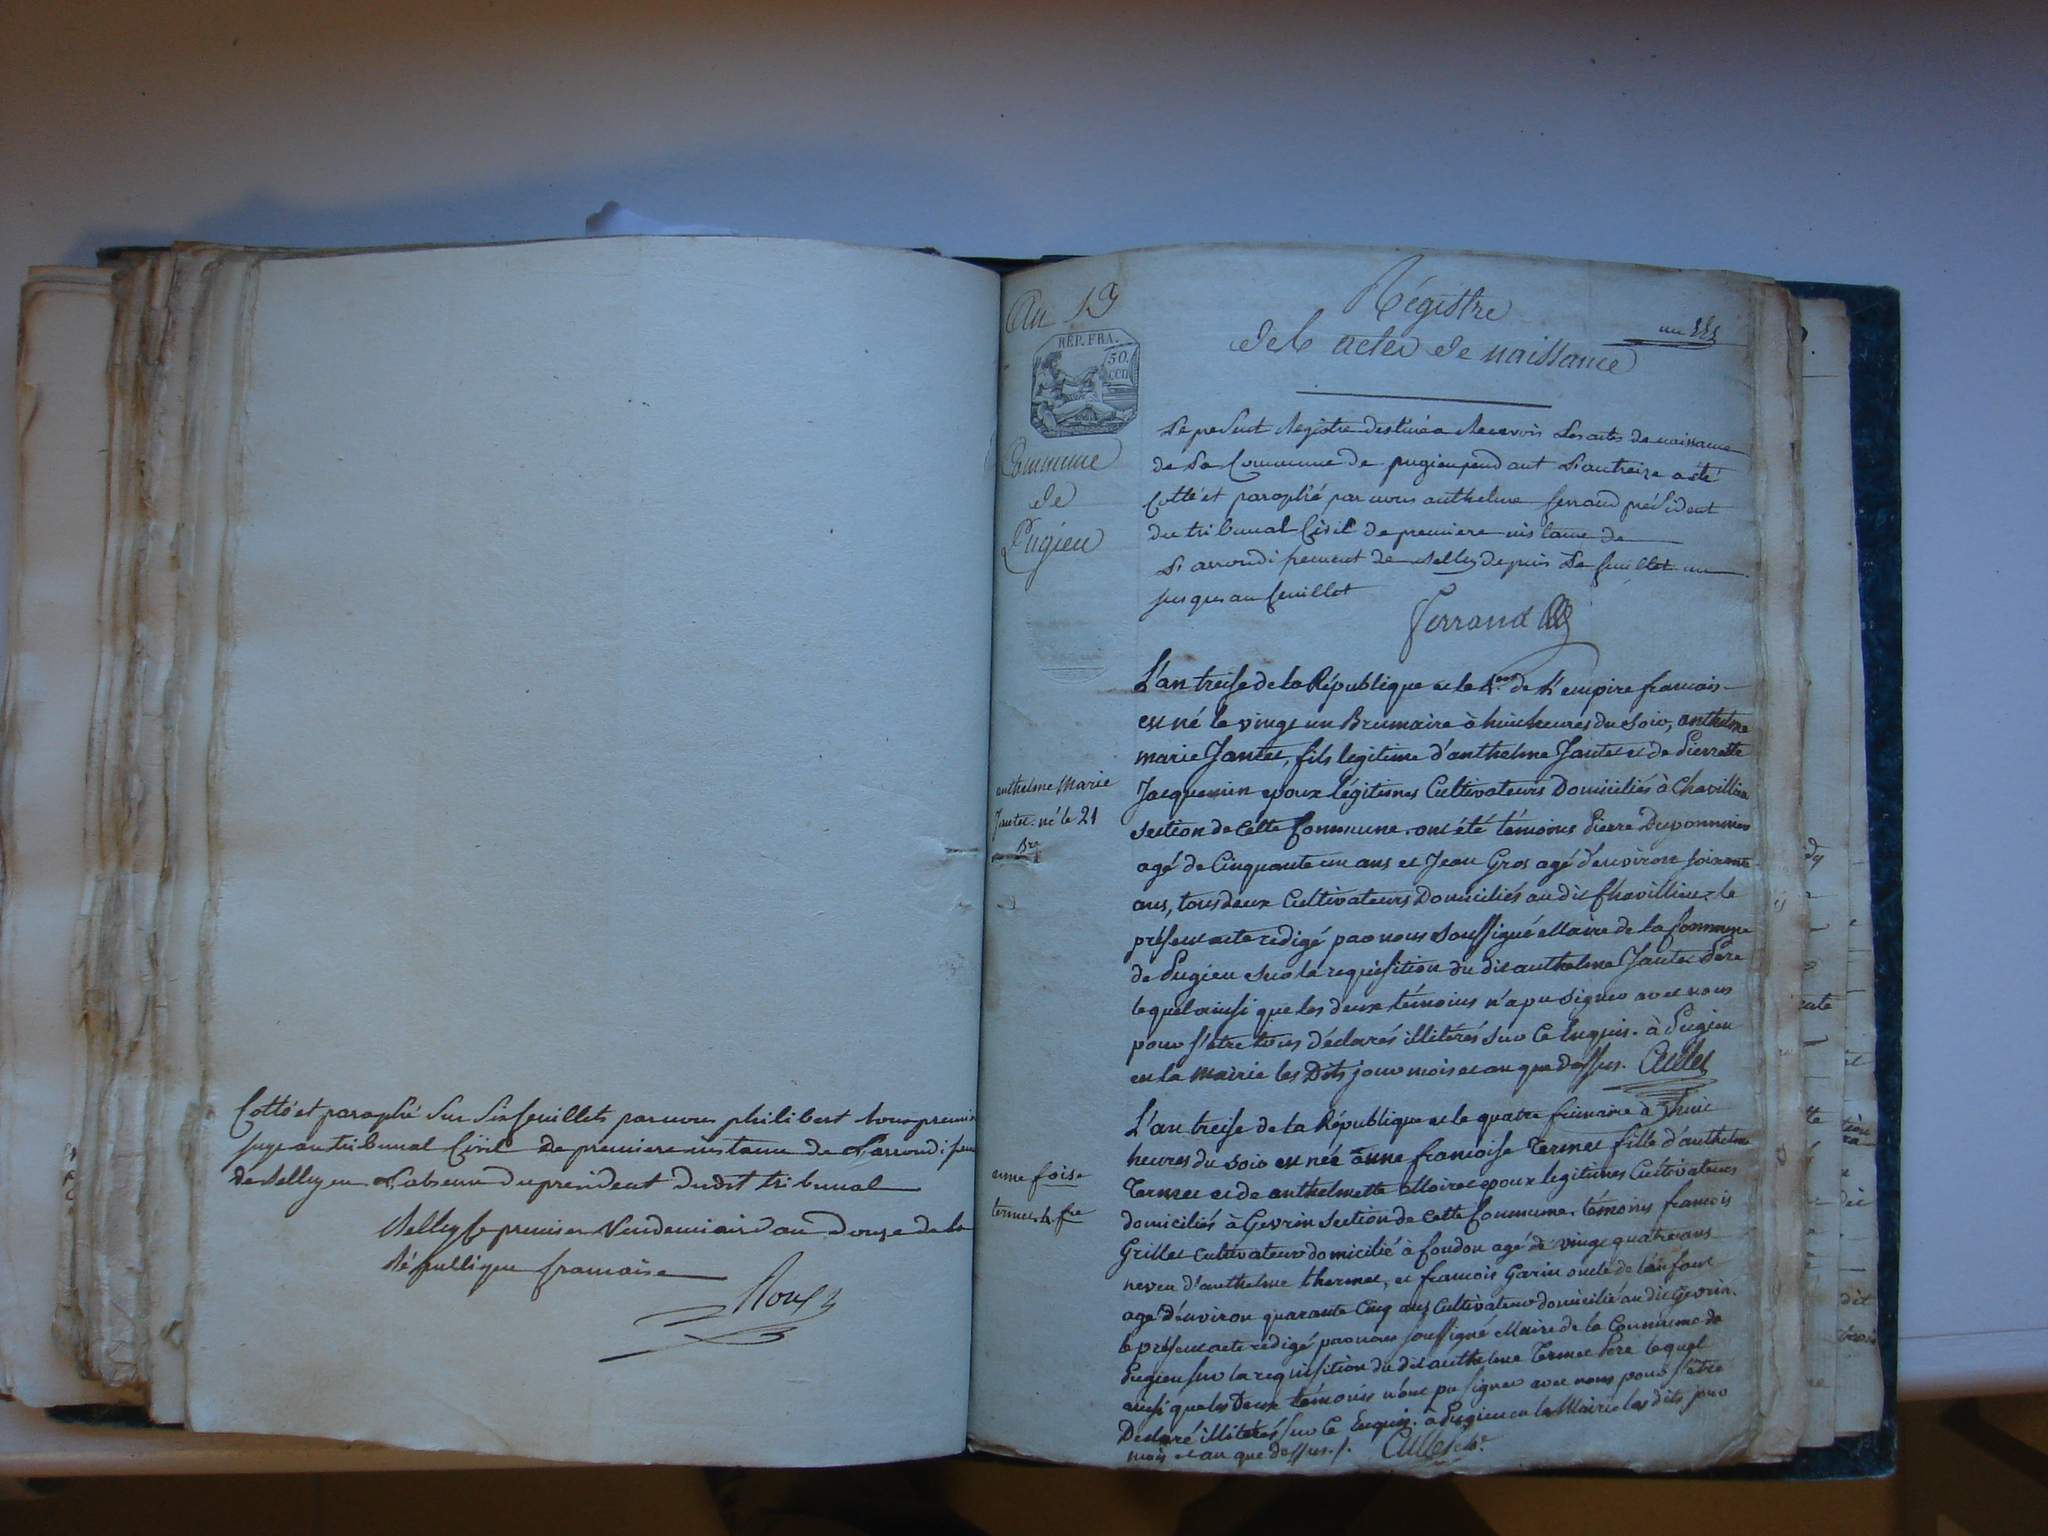 Cotté et paraphé sur six feuillets par nous philibert Roux premier
juge au tribunal Civil de premiere instance de L'arrondissem
de Belley en L'absence du président dudit tribunal
Belley le premier Vendemiaire an Douze de la
République francaise
Roux
An 13
REP. FRA.
50.
CEN
Commune
de
Pugieu
Régistre
des actes de naissance
un
Le present Registre destiné a Recevoir Les actes de naissance
de La Commune de pugieu pendant L'an treize a été
Cotté et paraphé par nous anthelme ferrand président
du tribunal Civil de premiere instance de
L'arrondissement de Belley depuis Le feuillet un
jusques au feuillet
ferrand
anthelme Marie
Jantet né le 21
Bre
L'an treise de la République et le 1er de l'empire francais
est né le vingt un Brumaire à huit heures du soir, anthelme
marie Jantet, fils legitime d'anthelme Jantet et de Pierrette
Jacquemin epoux légitimes Cultivateurs Domiciliés à Chavillieu
section de cette Commune. ont été témoins Pierre
agé de Cinquante un ans et Jean Gros agé d'environ soixante
ans, tous deux Cultivateurs Domiciliés au dit Chavillieu. le
présent acte redigé par nous soussigné Maire de la Commune
de Pugieu sur la requisition du dit anthelme Jantet Pere
lequel ainsi que les deux témoins n'a pu signer avec nous
pour s'être tous déclarés illiterés sur ce Enquis. à Pugieu
en la mairie les Dits jour mois et an que dessus.
anne foise
termet 4 fre
L'an treise de la République et le quatre frimaire à huit
heures du soir est née anne francoise Termet fille d'anthelme
Termet et de anthelmette Moiret epoux legitimes Cultivateurs
domiciliés à Gevrin section de cette Commune. témoins francois
Grillet cultivateur domicilié à fondon agé de vingt quatre ans
neveu d'anthelme thermet, et francois Garin oncle de l'enfant
agé d'environ quarante Cinq ans Cultivateur domicilié au dit Gevrin.
le présent acte redigé par nous soussigné Maire de la Commune de
Pugieu sur la requisition du dit anthelme Termet Pere lequel
ainsi que les Deux témoins n'ont pu signer avec nous pour s'être
Declaré illiterés sur ce Enquis. à Pugieu en la Mairie les dits jour
mois et an que dessus.